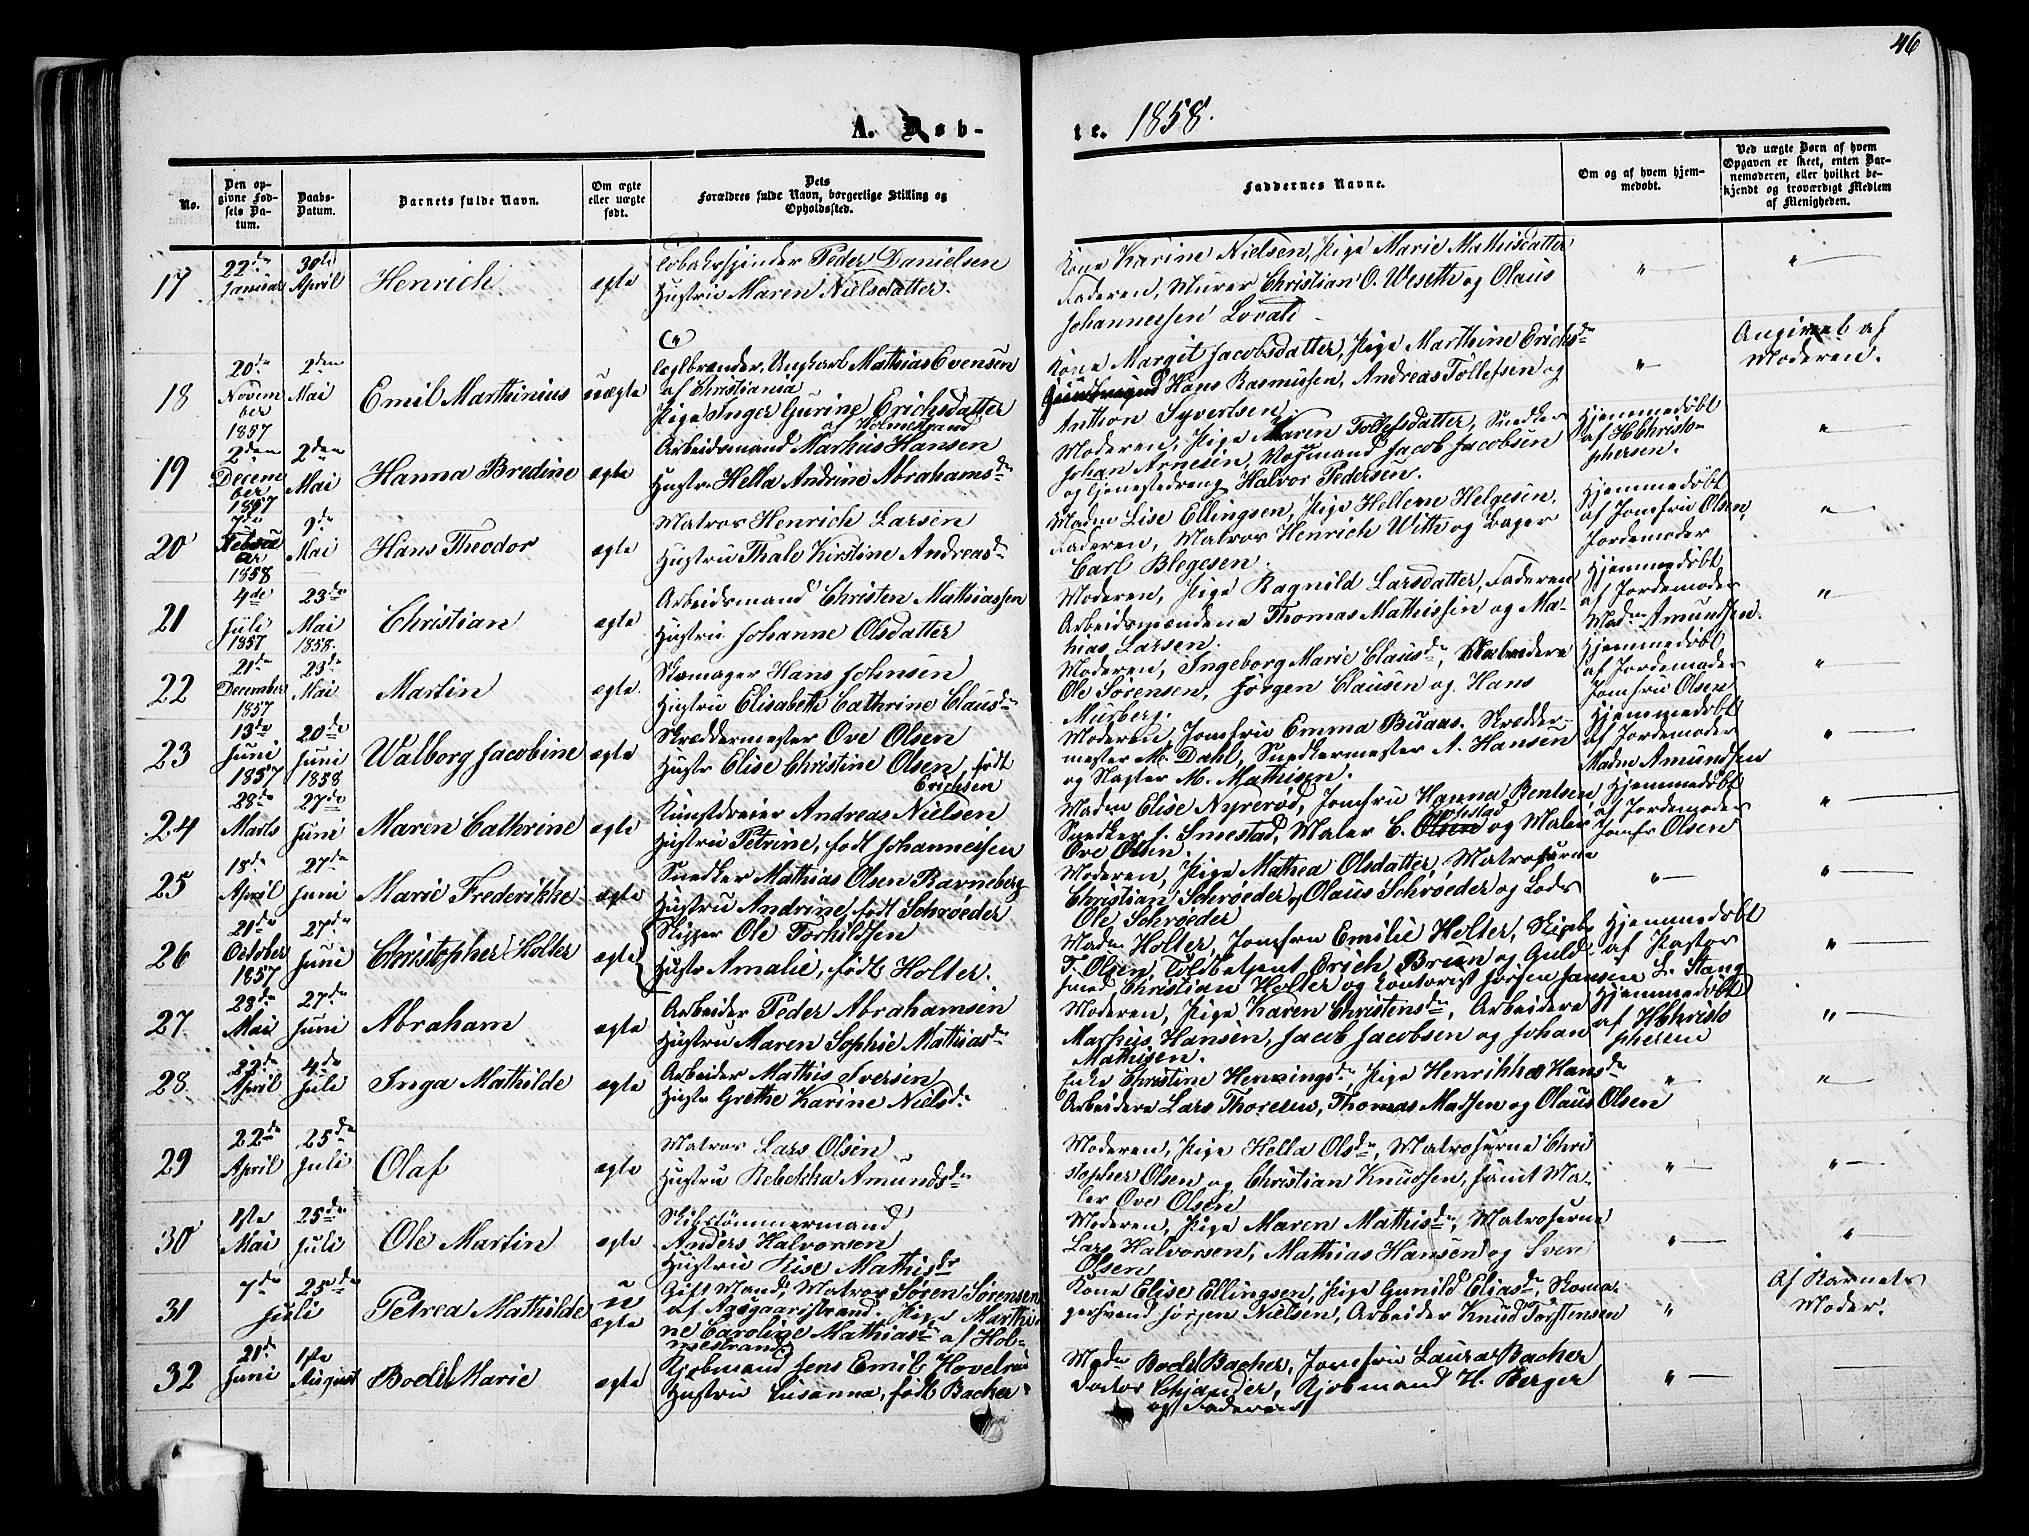 46
A. Døb-
te. 1858.
No.
Den op-
givne Fød-
sels Da-
tum.
Daabs-
Datum.
Barnets fulde Navn.
Om ægte
eller uægte
født.
Dets
Forældres fulde Navn, borgerlige Stilling og
Opholdssted.
Faddernes Navne.
Om og af hvem hjem-
medøbt.
Ved uægte Børn af hvem
Opgaven er skeet, enten Bar-
nemoderen, eller hvilket be-
kjendt og troværdigt Medlem
af Menigheden.
17
22de
Januar
30te
April
Henrich
ægte
Tobakspinder Peder Danielsen
Hustru Maren Nielsdatter.
Kone Karine Nielsen, Pige Marie Mathisdatter
Faderen, Murer Christian O. Weseth og Olaus
Johannessen Lovald
"
"
18
20de
Novem
ber
1857
2den
Mai
Emil Marthinius
uægte
Teglbrænder, Ungkarl Mathias Evensen
af Christiania
Pige Inger Gurine Erichsdatter
af Holmestrand
Kone Margit Jacobsdatter, Pige Marthine Erichsdr
Hans Rasmussen, Andreas Tollefsen og
Anthon Syvertsen
"
Angivet af
Moderen.
19
2den
Decem
ber
1857
2den
Mai
Hanna Bredine
ægte
Arbeidsmand Markus Hansen
Hustr. Hella Andrine Abrahamsdr
Moderen, Pige Maren Tollefsdatter, Snedker
Johan Arnesen, Vognmand Jacob Jacobsen
og Tjenestedreng Halvor Pedersen.
Hjemmedøbt
af H. Christo-
phersen.
"
20
7de
Februar
1858
9de
Mai
Hans Theodor
ægte
Matros Henrich Larsen
Hustru Thale Kirstine Andreasdr
Madm Lise Ellingsen, Pige Hellene Helgesen,
Faderen, Matros Henrich With og Bager
Carl Blegesen.
Hjemmedøbt
af Jomfru Olsen,
Jordemoder
"
21
4de
Juli
1857
23de
Mai
1858.
Christian
ægte
Arbeidsmand Christen Mathiassen
Hustru Johanne Olsdatter
Moderen, Pige Ragnild Larsdatter, Faderen
Arbeidsmændene Thomas Mathissen og Ma-
thias Larsen.
Hjemmedøbt
af Jordemoder
Madm Amundsen.
"
22
21de
December
1857
23de
Mai
Martin
ægte.
Skomager Hans Johnsen
Hustru Elisabeth Cathrine Clausdr
Moderen, Ingeborg Marie Clausdr, Arbeidere
Ole Sørensen, Jørgen Clausen og Hans
Murberg.
Hjemmedøbt
af Jordemoder
Jomfru Olsen
"
23
13de
Juni
1857
20de
Juni
1858
Walborg Jacobine
ægte
Skræddermester Ove Olsen
Hustr Elise Christine Olsen, født
Erichsen
Moderen, Jomfru Emma Busaas. Skrædder-
mester M. Dahl, Snedkermester A. Hansen
og Slagter M. Mathisen.
Hjemmedøbt
af Jordemoder
Madm Amundsen
"
24
28de
Marts
27de
Juni
Maren Cathrine
ægte
Kunstdreier Andreas Nielsen
Hustru Petrine, født Johannessen
Madm Elise Nyrerød, Jomfru Hanna Bentsen
Snedker J. Smestad, Maler C. Olsen og Maler
Ove Olsen.
Hjemmedøbt
af Jordemoder
Jomfr Olsen
"
25
18de
April
27de
Juni
Marie Frederikke
ægte
Snedker Mathias Olsen Ravneberg
Hustru Andrine, født Schrøeder
Moderen, Pige Mathea Olsdatter, Matroserne
Christian Schrøeder, Olaus Schrøeder og Lods
Ole Schrøeder
"
"
26
21de
October
1857
27de
Juni
Christopher Holter
ægte
Skipper Ole Torkildsen
Hustr Amalie, født Holter.
Madm Holter, Jomfru Emilie Holter, Skipb.
T. Olsen, Toldbetjent Erich Bruun og Guld-
smed Christian Holter og Kontorist Jørgen Jansen
Hjemmedøbt
af Pastor
L. Stang
"
27
28de
Mai
27de
Juni
Abraham
ægte
Arbeider Peder Abrahamsen
Hustru Maren Sophie Mathiasdr
Moderen, Pige Karen Christensdr, Arbeidere
Markus Hansen, Jacob Jacobsen og Johan
Mathisen.
Hjemmedøbt
af H. Christo
phersen
"
28
22de
April
4de
Juli
Inga Mathilde
ægte
Arbeider Mathis Iversen
Hustr Grethe Karine Nielsdr
Enke Christine Henningsdr, Pige Henrikke Hansdr
Arbeidere Lars Thoresen, Thomas Madsen og Olaus Olsen
"
"
29
22de
April
25de
Juli
Olaf
ægte
Matros Lars Olsen
Hustru Rebekka Amundsdr
Moderen, Pige Hella Olsdr, Matroserne Chri
stopher Olsen og Christian Knudsen, samt Ma-
ler Ove Olsen
"
"
30
1ste
Mai
25de
Juli
Ole Martin
ægte
Skibstømmermand
Anders Halvorsen
Hustru Lise Mathisdr
Moderen, Pige Maren Mathisdr, Matroserne
Lars Halvorsen, Mathias Hansen og Sven
Olsen
"
"
31
7de
Juli
25de
Petrea Mathilde
u
ægte
Gift Mand, Matros Søren Sørensen
af Aasgaardstrand. Pige Marthi
ne Caroline Mathiasdr af Hol-
mestrand
Kone Elise Ellingsen, Pige Gunild Eliasdr, Skoma-
gersvend Jørgen Nielsen, Arbeider Knud Torstensen
"
Af Barnets
Moder.
32
21de
Juni
1ste
August
Bodil Marie
ægte
Kjøbmand Jens Emil Hovelrud
Hustru Susanna, født Bacher
Madm Bodil Bacher, Jomfru Laura Bacher
Doctor Schjander, Kjøbmand H. Berger
og Faderen
"